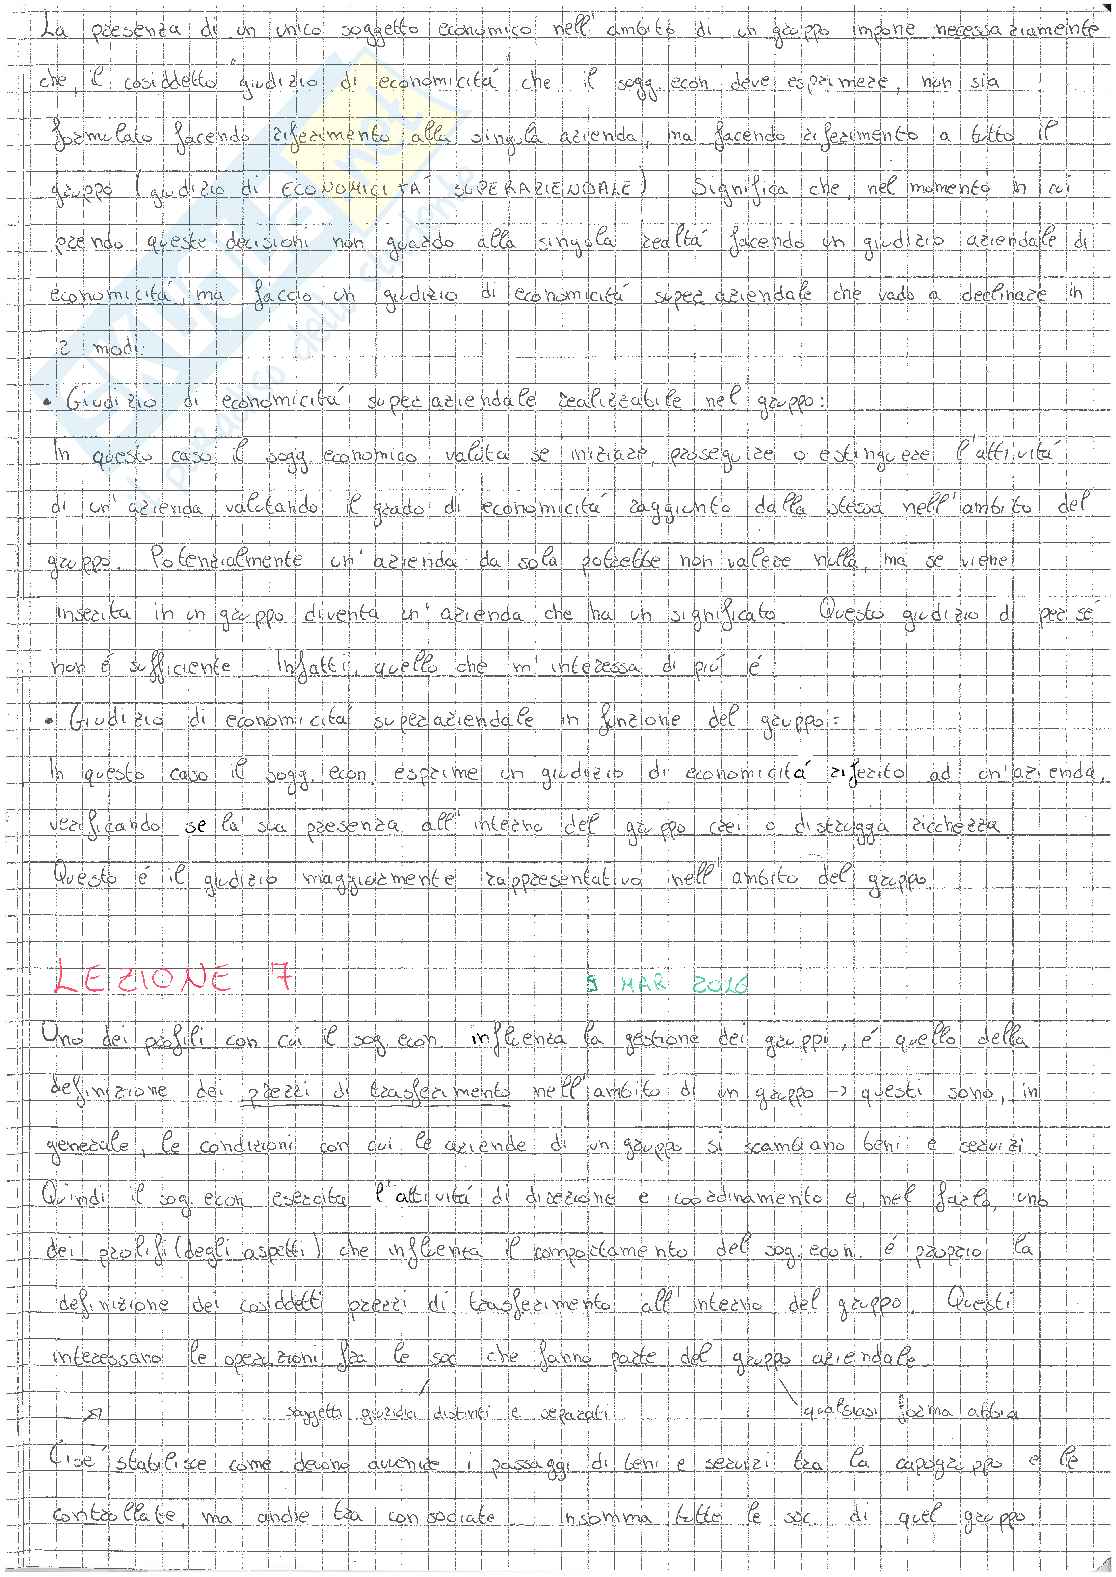 La presenza di un unico soggetto economico nell'ambito di un gruppo impone necessariamente
che, il cosiddetto "giudizio di economicitá" che il sogg. econ deve esprimere, non sia
formulato facendo riferimento alla singola azienda, ma facendo riferimento a tutto il
gruppo (giudizio di ECONOMICITÁ SUPERAZIENDALE) Significa che, nel momento in cui
prendo queste decisioni non guardo alla singola realtá facendo un giudizio aziendale di
economicitá, ma faccio un giudizio di economicitá superaziendale che vado a declinare in
2 modi:
• Giudizio di economicitá superaziendale realizzabile nel gruppo:
In questo caso il sogg. economico valuta se iniziare, proseguire o estinguere l'attivitá
di un'azienda, valutando il grado di economicitá raggiunto dalla stessa nell'ambito del
gruppo. Potenzialmente un'azienda da sola potrebbe non valere nulla, ma se viene
inserita in un gruppo diventa un'azienda che ha un significato Questo giudizio di per sé
non é sufficiente Infatti, quello che m'interessa di piú é:
• Giudizio di economicitá superaziendale in funzione del gruppo:
In questo caso il sogg. econ. esprime un giudizio di economicitá riferito ad un'azienda,
verificando se la sua presenza all'interno del gruppo crei o distrugga ricchezza.
Questo é il giudizio maggiormente rappresentativo nell'ambito del gruppo
LEZIONE 7 9 MAR 2016
Uno dei profili con cui il sog. econ. influenza la gestione dei gruppi, é quello della
definizione dei prezzi di trasferimento nell'ambito di un gruppo → questi sono, in
generale, le condizioni con cui le aziende di un gruppo si scambiano beni e servizi
Quindi il sog. econ esercita l'attivitá di direzione e coordinamento e, nel farlo, uno
dei profili (degli aspetti) che influenza il comportamento del sog. econ. é proprio la
definizione dei cosiddetti prezzi di trasferimento all'interno del gruppo. Questi
interessano le operazioni fra le soc che fanno parte del gruppo aziendale
soggetti giuridici distinti e separati qualsiasi forma abbia
Cioé stabilisce come devono avvenire i passaggi di beni e servizi tra la capogruppo e le
controllate, ma anche tra consociate Insomma tutte le soc. di quel gruppo
SKUOLA.net